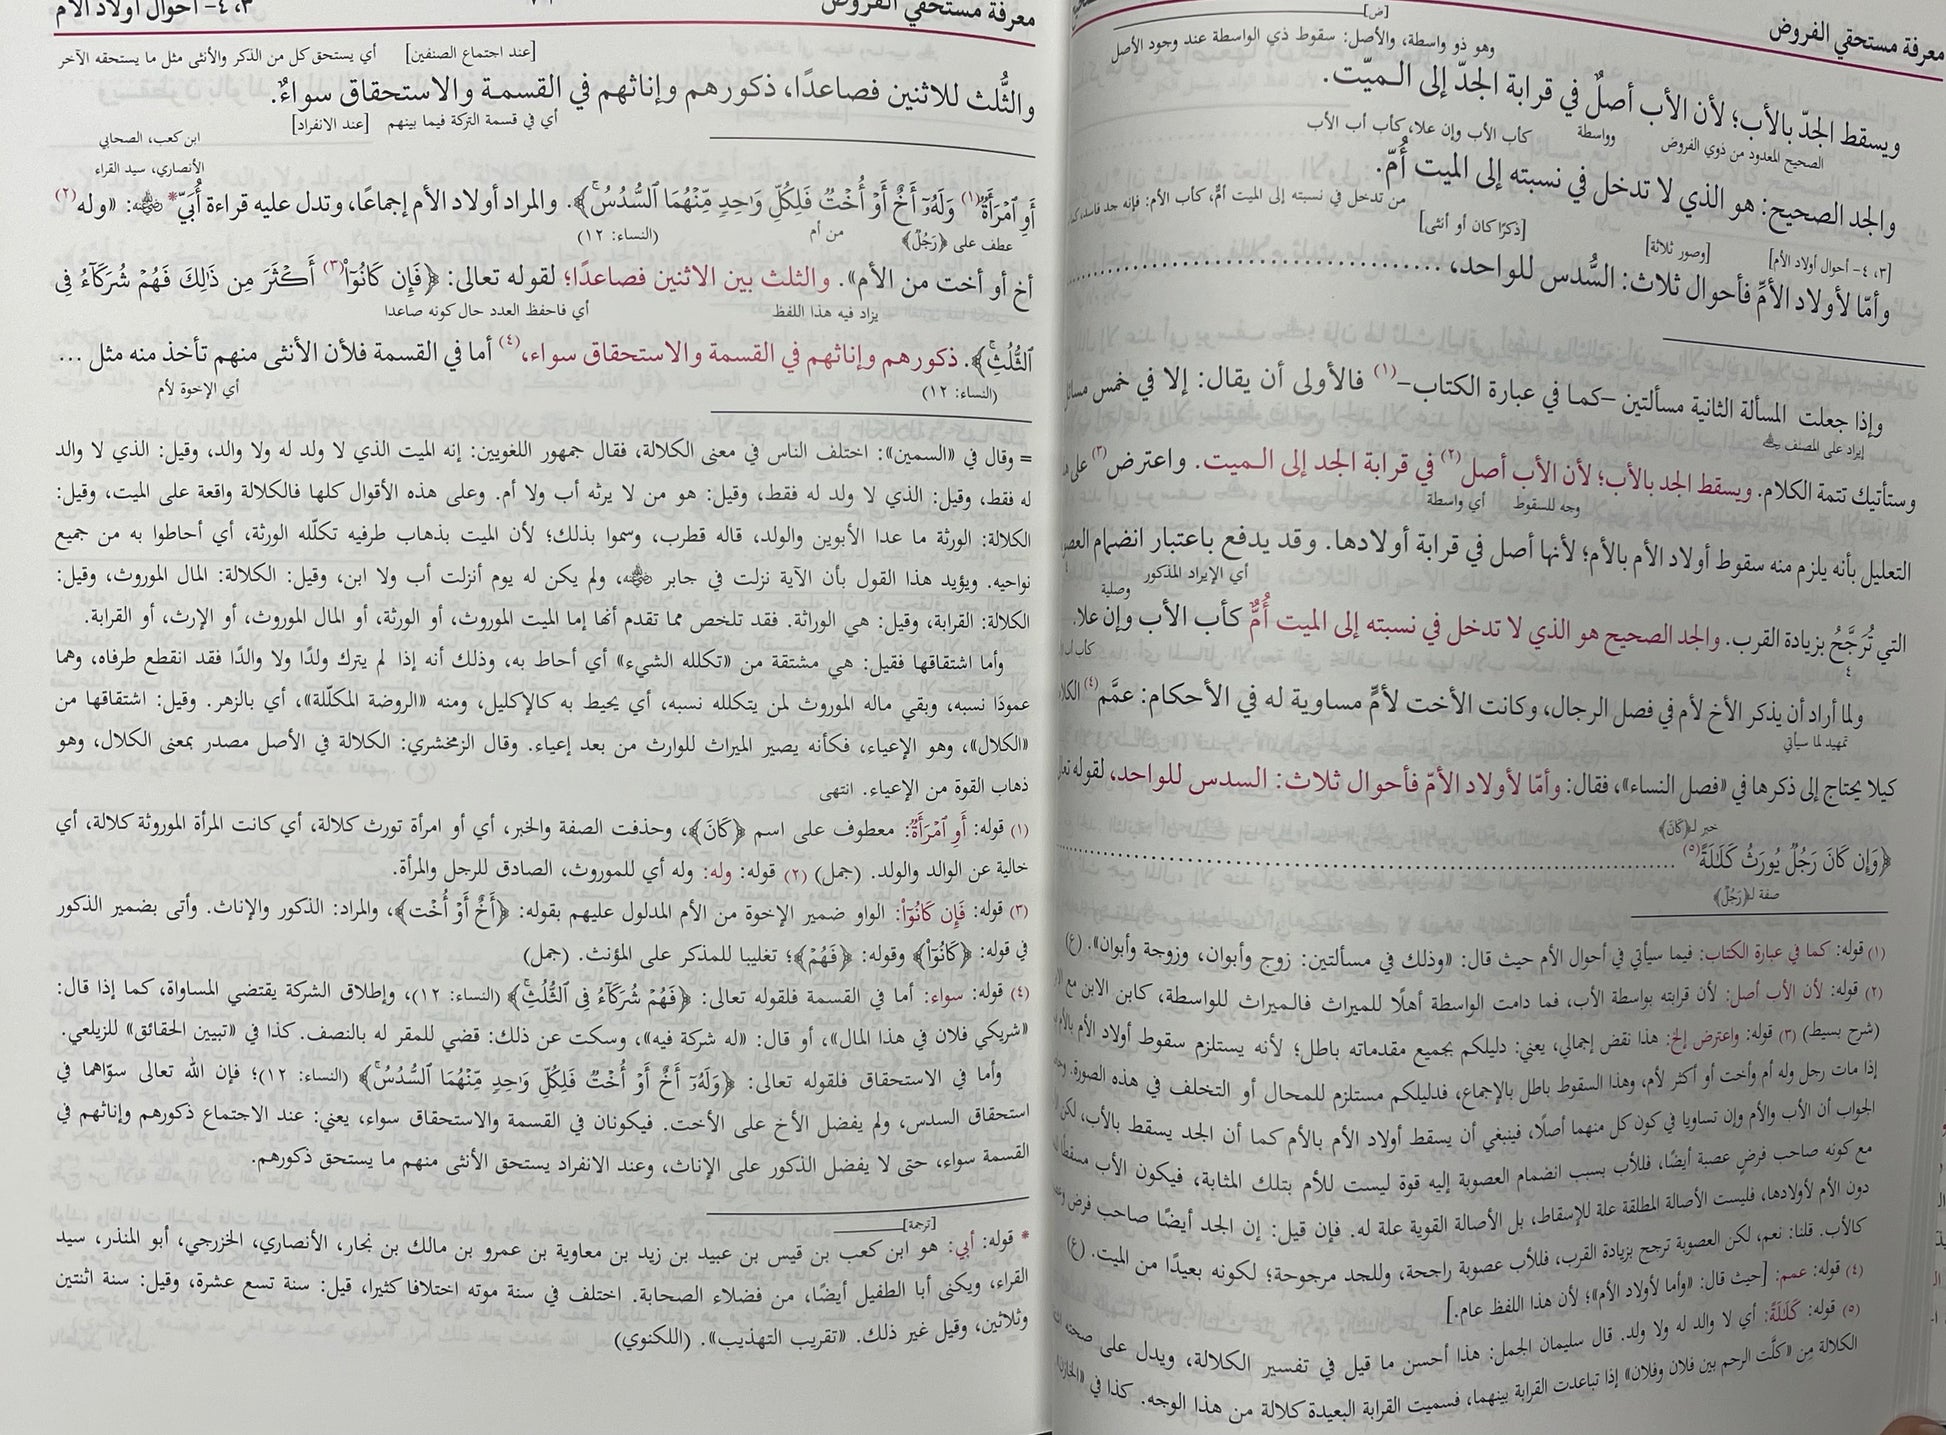 معرفة مستحقي الفروض
[ض]
وهو ذو واسطة، والأصل: سقوط ذي الواسطة عند وجود الأصل
ويسقط الجدّ بالأب؛ لأن الأب أصلٌ في قرابة الجدّ إلى الـميّت.
الصحيح المعدود من ذوي الفروض وواسطة كأب الأب وإن علا، كأب أب الأب
والجد الصحيح: هو الذي لا تدخل في نسبته إلى الميت أُمّ.
من تدخل في نسبته إلى الميت أمٌّ، كأب الأم: فإنه جد فاسد،
[٣، ٤- أحوال أولاد الأم] [وصور ثلاثة] [ذكرًا كان أو أنثى]
وأمّا لأولاد الأمِّ فأحوال ثلاث: السُّدس للواحد،
وإذا جعلت المسألة الثانية مسألتين –كما في عبارة الكتاب–(١) فالأولى أن يقال: إلا في خمس
إيراد على المصنف
وستأتيك تتمة الكلام. ويسقط الجد بالأب؛ لأن الأب أصل(٢) في قرابة الجد إلى الـميت. واعترض(٣)
وجه للسقوط أي واسطة
التعليل بأنه يلزم منه سقوط أولاد الأم بالأم؛ لأنها أصل في قرابة أولادها. وقد يدفع باعتبار انضمام
أي الإيراد المذكور وصلية
التي تُرَجَّحُ بزيادة القرب. والجد الصحيح هو الذي لا تدخل في نسبته إلى الميت أُمٌّ كأب الأب وإن علا.
ولما أراد أن يذكر الأخ لأم في فصل الرجال، وكانت الأخت لأمٍّ مساوية له في الأحكام: عمَّم(٤)
تمهيد لما سيأتي
كيلا يحتاج إلى ذكرها في «فصل النساء»، فقال: وأمّا لأولاد الأمّ فأحوال ثلاث: السدس للواحد، لقوله
خبر لـ﴿كَانَ﴾
﴿وَإِن كَانَ رَجُلٌ يُورَثُ كَلَٰلَةً(٥)
صفة لـ﴿رَجُلٌ﴾
(١) قوله: كما في عبارة الكتاب: فيما سيأتي في أحوال الأم حيث قال: «وذلك في مسألتين: زوج وأبوان، وزوجة وأبوان». (ع)
(٢) قوله: لأن الأب أصل: لأن قرابته بواسطة الأب، فما دامت الواسطة أهلًا للميراث فالميراث للواسطة، كابن الابن مع
(شرح بسيط) (٣) قوله: واعترض إلخ: هذا نقض إجمالي، يعني: دليلكم بجميع مقدماته باطل؛ لأنه يستلزم سقوط أولاد الأم بالأم
إذا مات رجل وله أم وأخت أو أكثر لأم، وهذا السقوط باطل بالإجماع، فدليلكم مستلزم للمحال أو التخلف في هذه الصورة.
الجواب أن الأب والأم وإن تساويا في كون كل منهما أصلًا، فينبغي أن يسقط أولاد الأم بالأم كما أن الجد يسقط بالأب، لكن
مع كونه صاحب فرضٍ عصبة أيضًا، فللأب بسبب انضمام العصوبة إليه قوة ليست للأم بتلك المثابة، فيكون الأب مسقطًا
دون الأم لأولادها، فليست الأصالة المطلقة علة للإسقاط، بل الأصالة القوية علة له. فإن قيل: إن الجد أيضًا صاحب فرض
كالأب. قلنا: نعم، لكن العصوبة ترجح بزيادة القرب، فللأب عصوبة راجحة، وللجد مرجوحة؛ لكونه بعيدًا من الميت. (ع)
(٤) قوله: عمم: [حيث قال: «وأما لأولاد الأم»؛ لأن هذا اللفظ عام.]
(٥) قوله: كَلَٰلَةً: أي لا والد له ولا ولد. قال سليمان الجمل: هذا أحسن ما قيل في تفسير الكلالة، ويدل على صحته
الكلالة من «كلَّت الرحم بين فلان وفلان» إذا تباعدت القرابة بينهما، فسميت القرابة البعيدة كلالة من هذا الوجه. كذا في
معرفة مستحقي الفروض
٣، ٤- أحوال أولاد الأم
[عند اجتماع الصنفين] أي يستحق كل من الذكر والأنثى مثل ما يستحقه الآخر
والثُّلث للاثنين فصاعدًا، ذكورهم وإناثهم في القسمة والاستحقاق سواءٌ.
أي في قسمة التركة فيما بينهم [عند الانفراد]
ابن كعب، الصحابي
الأنصاري، سيد القراء
أَوِ ٱمۡرَأَةٌ(١) وَلَهُۥٓ أَخٌ أَوۡ أُخۡتٞ فَلِكُلِّ وَٰحِدٖ مِّنۡهُمَا ٱلسُّدُسُۚ﴾. والمراد أولاد الأم إجماعًا، وتدل عليه قراءة أُبَيّ*: «وله(٢)
عطف على ﴿رَجُلٌ﴾ من أم (النساء: ١٢)
أخ أو أخت من الأم». والثلث بين الاثنين فصاعدًا؛ لقوله تعالى: ﴿فَإِن كَانُوٓاْ(٣) أَكۡثَرَ مِن ذَٰلِكَ فَهُمۡ شُرَكَآءُ فِى
يزاد فيه هذا اللفظ أي فاحفظ العدد حال كونه صاعدا
ٱلثُّلُثِۚ﴾. ذكورهم وإناثهم في القسمة والاستحقاق سواء،(٤) أما في القسمة فلأن الأنثى منهم تأخذ منه مثل ...
(النساء: ١٢) أي الإخوة لأم
= وقال في «السمين»: اختلف الناس في معنى الكلالة، فقال جمهور اللغويين: إنه الميت الذي لا ولد له ولا والد، وقيل: الذي لا والد
له فقط، وقيل: الذي لا ولد له فقط، وقيل: هو من لا يرثه أب ولا أم. وعلى هذه الأقوال كلها فالكلالة واقعة على الميت، وقيل:
الكلالة: الورثة ما عدا الأبوين والولد، قاله قطرب، وسموا بذلك؛ لأن الميت بذهاب طرفيه تكلّله الورثة، أي أحاطوا به من جميع
نواحيه. ويؤيد هذا القول بأن الآية نزلت في جابر ﷺ، ولم يكن له يوم أنزلت أب ولا ابن، وقيل: الكلالة: المال الموروث، وقيل:
الكلالة: القرابة، وقيل: هي الوراثة. فقد تلخص مما تقدم أنها إما الميت الموروث، أو الورثة، أو المال الموروث، أو الإرث، أو القرابة.
وأما اشتقاقها فقيل: هي مشتقة من «تكلله الشيء» أي أحاط به، وذلك أنه إذا لم يترك ولدًا ولا والدًا فقد انقطع طرفاه، وهما
عمودَا نسبه، وبقي ماله الموروث لمن يتكلله نسبه، أي يحيط به كالإكليل، ومنه «الروضة المكلّلة»، أي بالزهر. وقيل: اشتقاقها من
«الكلال»، وهو الإعياء، فكأنه يصير الميراث للوارث من بعد إعياء. وقال الزمخشري: الكلالة في الأصل مصدر بمعنى الكلال، وهو
ذهاب القوة من الإعياء. انتهى
(١) قوله: أَوِ ٱمۡرَأَةٌ: معطوف على اسم ﴿كَانَ﴾، وحذفت الصفة والخبر، أي أو امرأة تورث كلالة، أي كانت المرأة الموروثة كلالة، أي
خالية عن الوالد والولد. (جمل) (٢) قوله: وله: وله أي للموروث، الصادق للرجل والمرأة.
(٣) قوله: فَإِن كَانُوٓاْ: الواو ضمير الإخوة من الأم المدلول عليهم بقوله: ﴿أَخٌ أَوۡ أُخۡت﴾، والمراد: الذكور والإناث. وأتى بضمير الذكور
في قوله: ﴿كَانُوٓاْ﴾ وقوله: ﴿فَهُمۡ﴾؛ تغليبا للمذكر على المؤنث. (جمل)
(٤) قوله: سواء: أما في القسمة فلقوله تعالى: ﴿فَهُمۡ شُرَكَآءُ فِى ٱلثُّلُثِۚ﴾ (النساء: ١٢)، وإطلاق الشركة يقتضي المساواة، كما إذا قال:
«شريكي فلان في هذا المال»، أو قال: «له شركة فيه»، وسكت عن ذلك: قضي للمقر له بالنصف. كذا في «تبيين الحقائق» للزيلعي.
وأما في الاستحقاق فلقوله تعالى: ﴿وَلَهُۥٓ أَخٌ أَوۡ أُخۡتٞ فَلِكُلِّ وَٰحِدٖ مِّنۡهُمَا ٱلسُّدُسُۚ﴾ (النساء: ١٢)؛ فإن الله تعالى سوّاهما في
استحقاق السدس، ولم يفضل الأخ على الأخت. فيكونان في القسمة والاستحقاق سواء، يعني: عند الاجتماع ذكورهم وإناثهم في
القسمة سواء، حتى لا يفضل الذكور على الإناث، وعند الانفراد يستحق الأنثى منهم ما يستحق ذكورهم.
[ترجمة]
* قوله: أبي: هو ابن كعب بن قيس بن عبيد بن زيد بن معاوية بن عمرو بن مالك بن نجار، الأنصاري، الخزرجي، أبو المنذر، سيد
القراء، ويكنى أبا الطفيل أيضًا، من فضلاء الصحابة. اختلف في سنة موته اختلافا كثيرا، قيل: سنة تسع عشرة، وقيل: سنة اثنتين
وثلاثين، وقيل غير ذلك. «تقريب التهذيب». (اللكنوي)